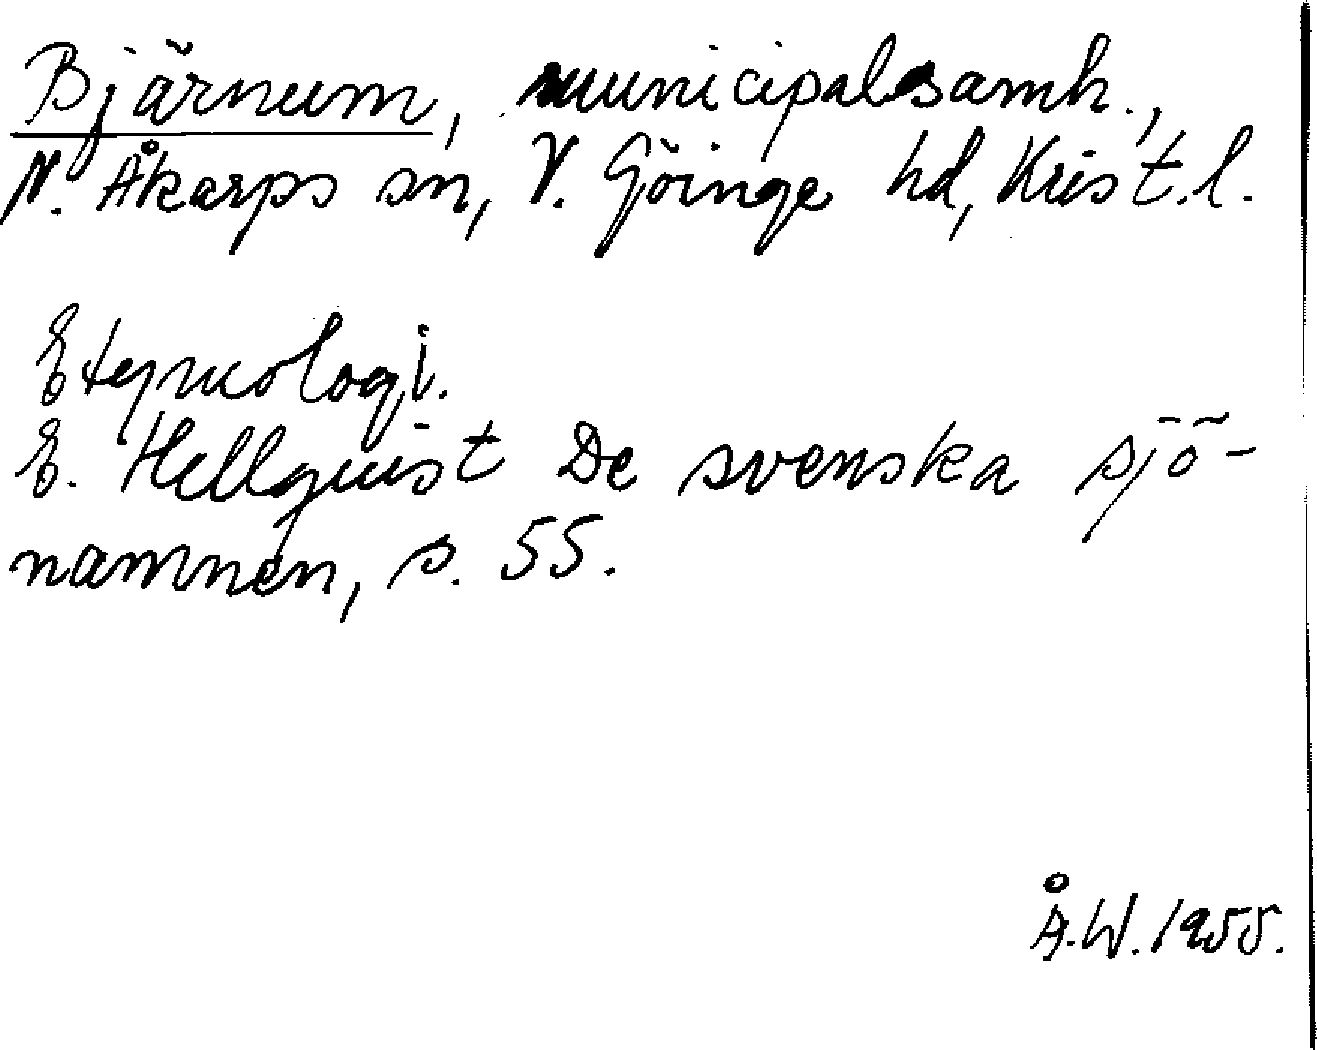 Bjärnum, municipalsamh.,
N. Åkarps sn, V. Göinge hd, Krist.l.
Etymologi.
E. Hellquist De svenska sjö-
namnen, s. 55.
Å.W. 1955.